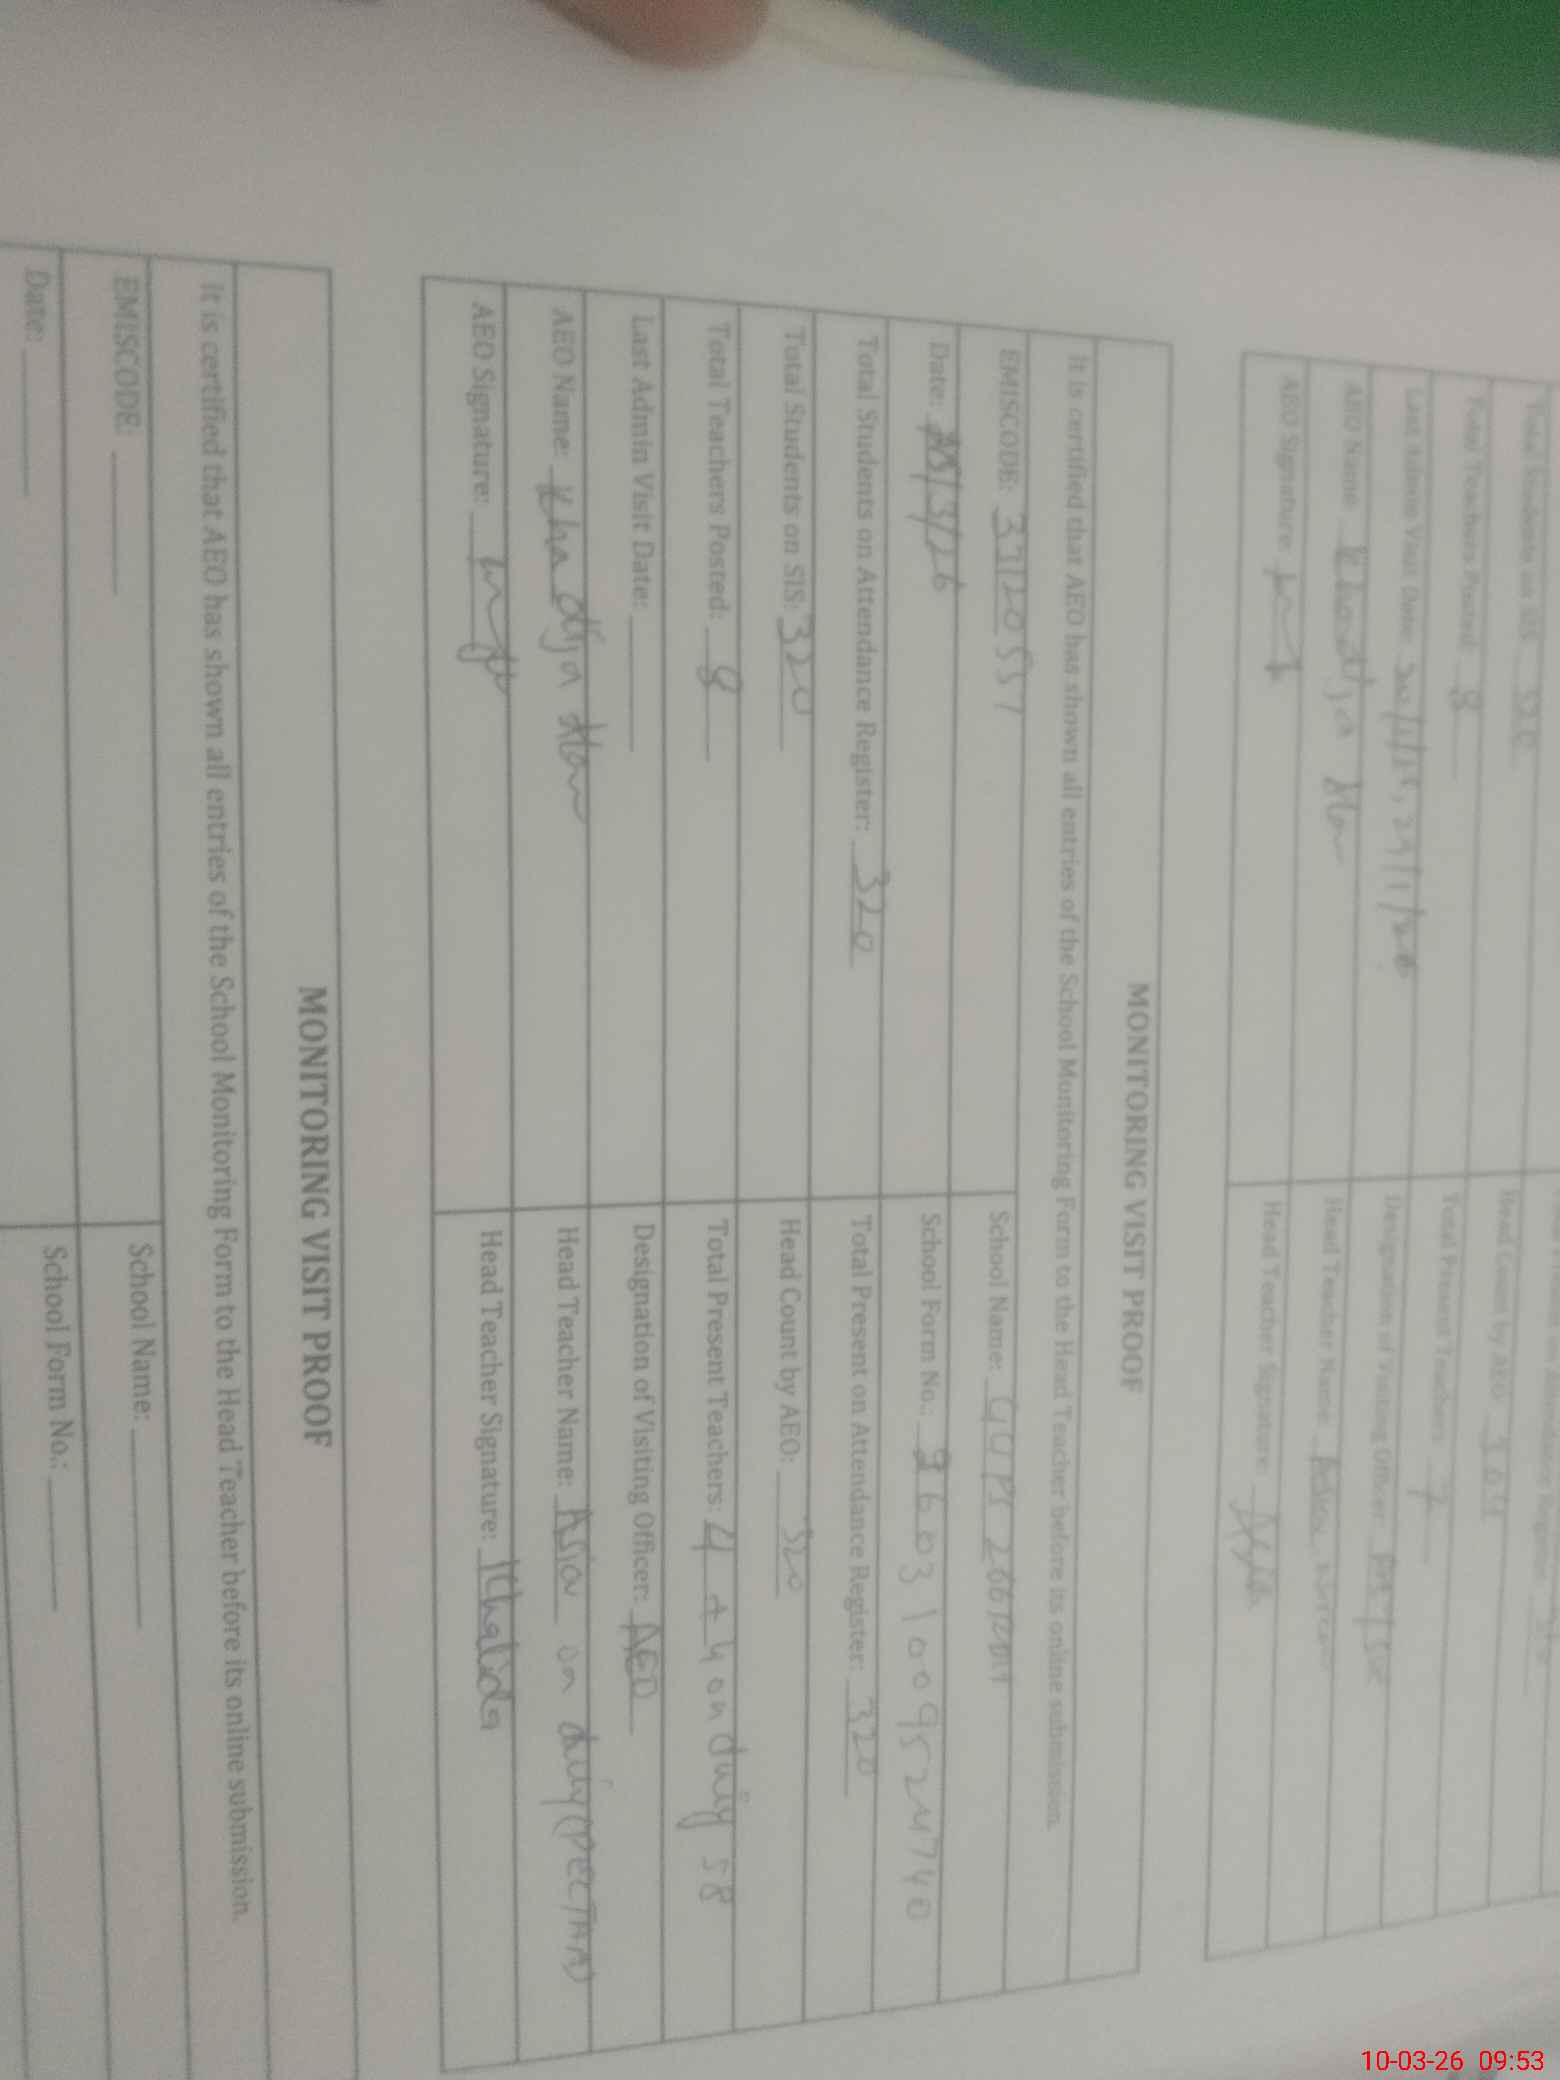 Total Students on SIS: 320
Head Count by AEO: 304
Total Teachers Posted: 8
Total Present Teachers: 7
Last Admin Visit Date:
Designation of Visiting Officer:
AEO Name: Khadija
Head Teacher Name:
AEO Signature:
Head Teacher Signature:
MONITORING VISIT PROOF
It is certified that AEO has shown all entries of the School Monitoring Form to the Head Teacher before its online submission.
EMISCODE:
School Name:
Date: /3/26
School Form No.:
Total Students on Attendance Register: 320
Total Present on Attendance Register: 320
Total Students on SIS: 320
Head Count by AEO: 320
Total Teachers Posted: 8
Total Present Teachers: 4 + 4 on duty 58
Last Admin Visit Date:
Designation of Visiting Officer: AEO
AEO Name: Khadija
Head Teacher Name: Asia on duty (PECTAA)
AEO Signature:
Head Teacher Signature: Khalida
MONITORING VISIT PROOF
It is certified that AEO has shown all entries of the School Monitoring Form to the Head Teacher before its online submission.
EMISCODE:
School Name:
Date:
School Form No.:
10-03-26 09:53